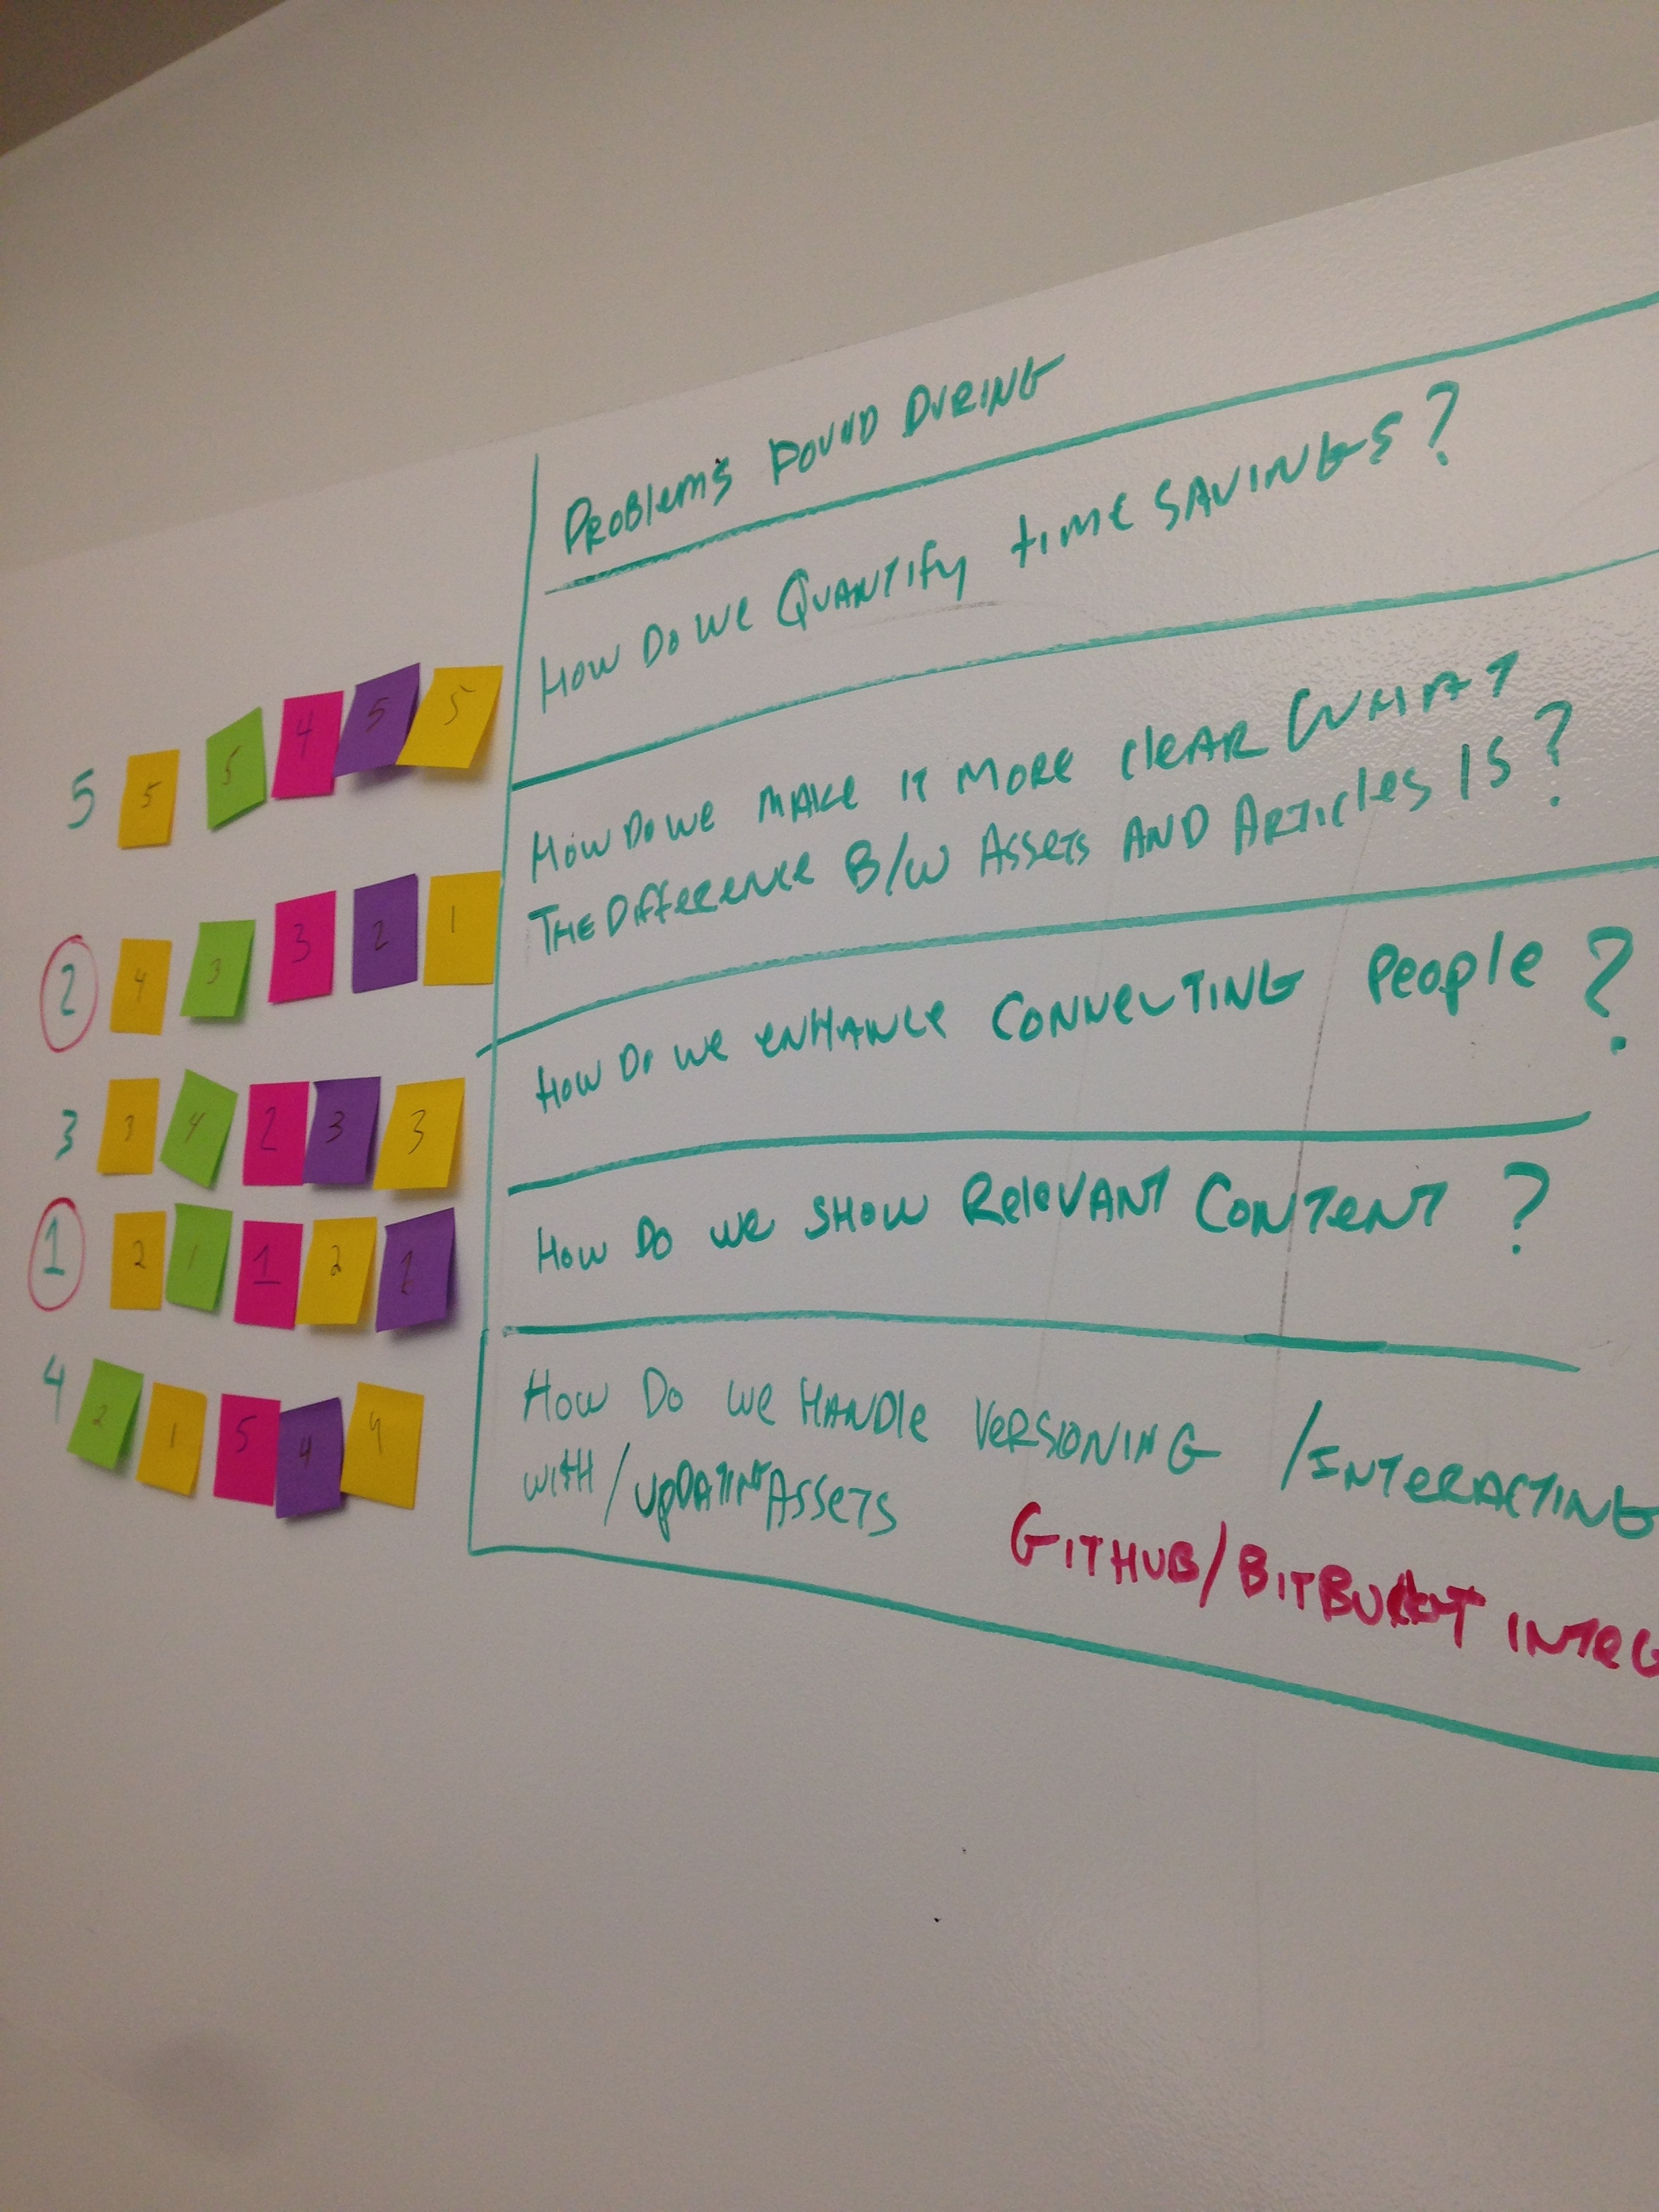 Problems Found During
How Do we Quantify time savings?
5 5 5 4 5 5
How Do we make it more clear what
The Difference B/W Assets AND Articles IS?
2 4 3 3 2 1
How Do we enhance connecting People?
3 3 4 2 3 3
How Do we show Relevant Content?
1 2 1 1 2
4 2 1 5 4 4
How Do we Handle Versioning /Interacting
with/updating Assets
GitHub/BitBucket integ